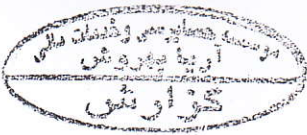 موسسه حسابرسی و خدمات مالی
آریا بهروش
گزارش